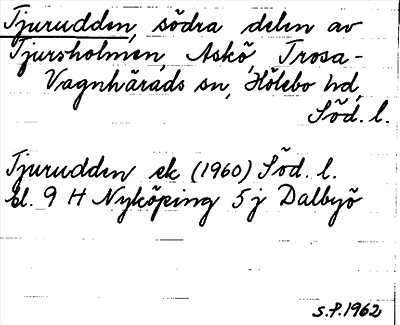 Tjurudden, södra delen av
Tjursholmen, Askö, Trosa-
Vagnhärads sn, Hölebo hd,
Söd. l.
Tjurudden ek (1960) Söd. l.
bl. 9 H Nyköping 5 j Dalbyö
S.P. 1962